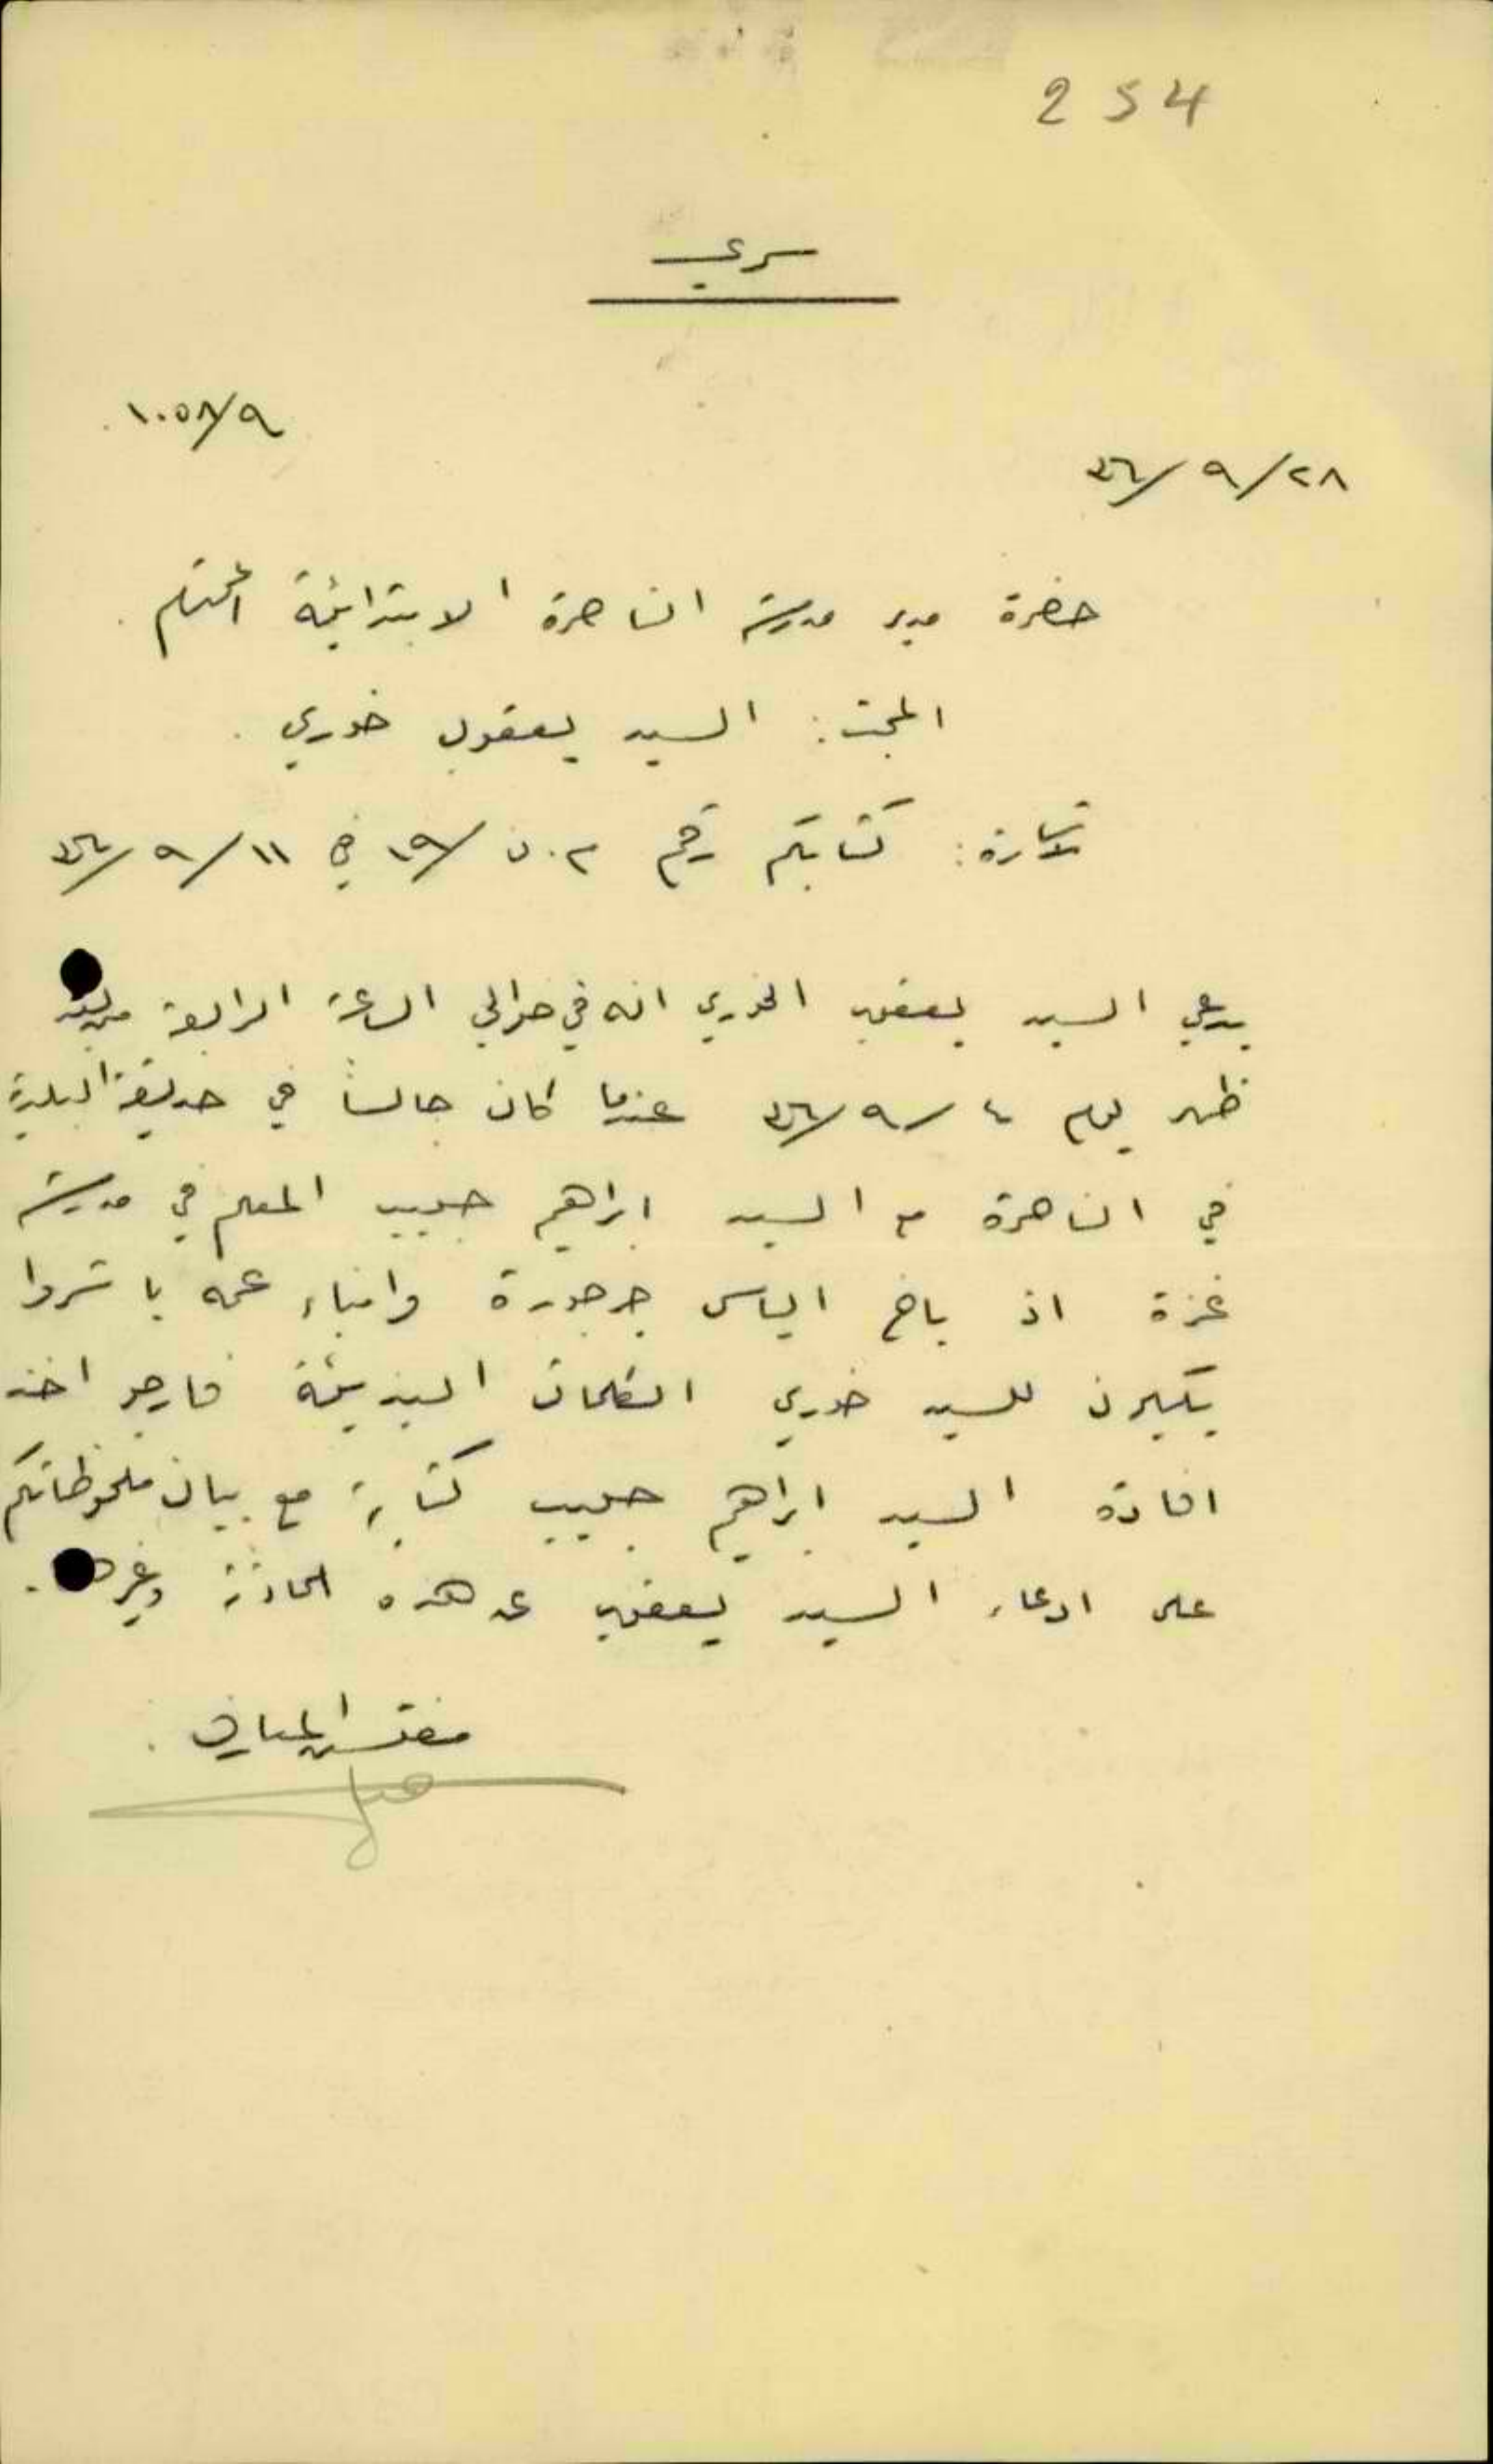 254
سري
١٠٥٨/٩
٤٦/٩/٢٨
حضرة مدير مدرسة الناصرة الابتدائية المحترم.
المبحث: السيد يعقوب خوري.
كتابكم رقم في ٤٦/٩/١١
يدعي السيد يعقوب الخوري انه في حوالي الساعة الرابعة من بعد
ظهر يوم ٤٦/٩/٤ عندما كان جالساً في حديقة البلدية
في الناصرة مع السيد ابراهيم حبيب المعلم في مدرسة
غزة اذ الياس جرجورة وابناء عمه باشروا
يكيلون للسيد خوري الكلمات البذيئة فارجو اخذ
افادة السيد ابراهيم حبيب كتابة مع بيان ملحوظاتكم
على ادعاء السيد يعقوب عن هذه الحادثة وغيرها.
مفتش المعارف.